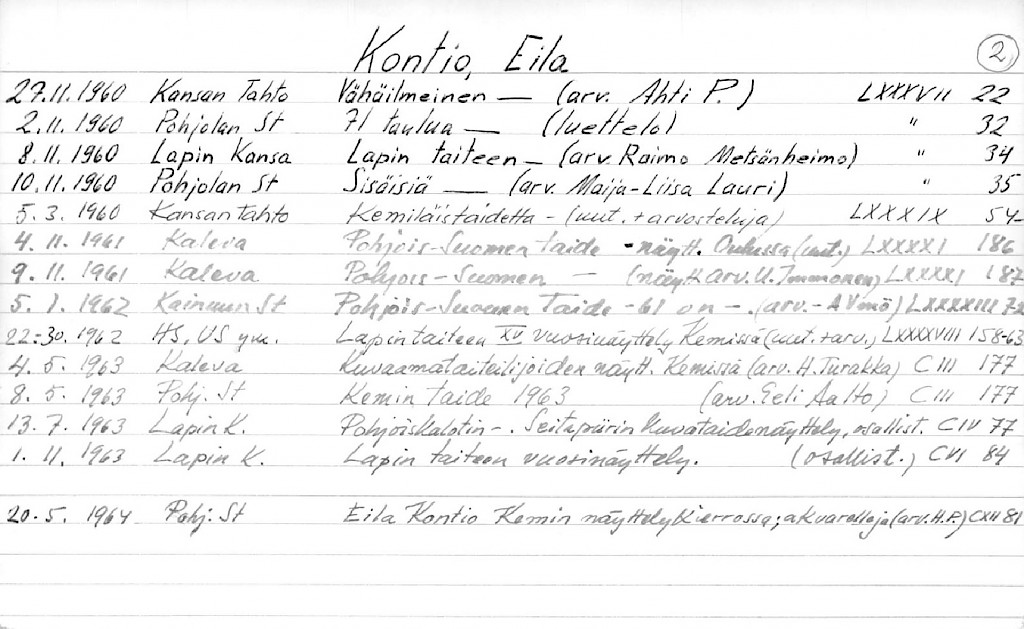 Kontio, Eila 2
27.11.1960 Kansan Tahto Vähäilmeinen — (arv. Ahti P.) LXXXVII 22
2.11.1960 Pohjolan St 71 taulua — (luettelo) " 32
8.11.1960 Lapin Kansa Lapin taiteen — (arv. Raimo Metsänheimo) " 34
10.11.1960 Pohjolan St Sisäisiä — (arv. Maija-Liisa Lauri) " 35
5.3.1960 Kansan tahto Kemiläistaidetta - (uut. + arvosteluja) LXXXIX 54-
4.11.1961 Kaleva Pohjois-Suomen taide - näytt. Oulussa (uut.) LXXXXI 186
9.11.1961 Kaleva Pohjois-Suomen — (näytt. arv. U. Immonen) LXXXXI 187
5.1.1962 Kainuun St Pohjois-Suomen Taide -61 on -. (arv. - A Vimö) LXXXXIII 72
22-30. 1962 HS, US ym. Lapin taiteen XV vuosinäyttely Kemissä (uut. + arv.) LXXXXVIII 158-63
4.5.1963 Kaleva Kuvaamataiteilijoiden näytt. Kemissä (arv. H. Turakka) C III 177
8.5.1963 Pohj. St Kemin taide 1963 (arv. Eeli Aalto) C III 177
13.7.1963 Lapin K. Pohjoiskalotin -. Seitapiirin kuvataidenäyttely, osallist. CIV 77
1.11.1963 Lapin K. Lapin taiteen vuosinäyttely. (osallist.) CVI 84
20.5.1964 Pohj. St Eila Kontio Kemin näyttelykierrossa; akvarelleja (arv. H.P.) CXII 81